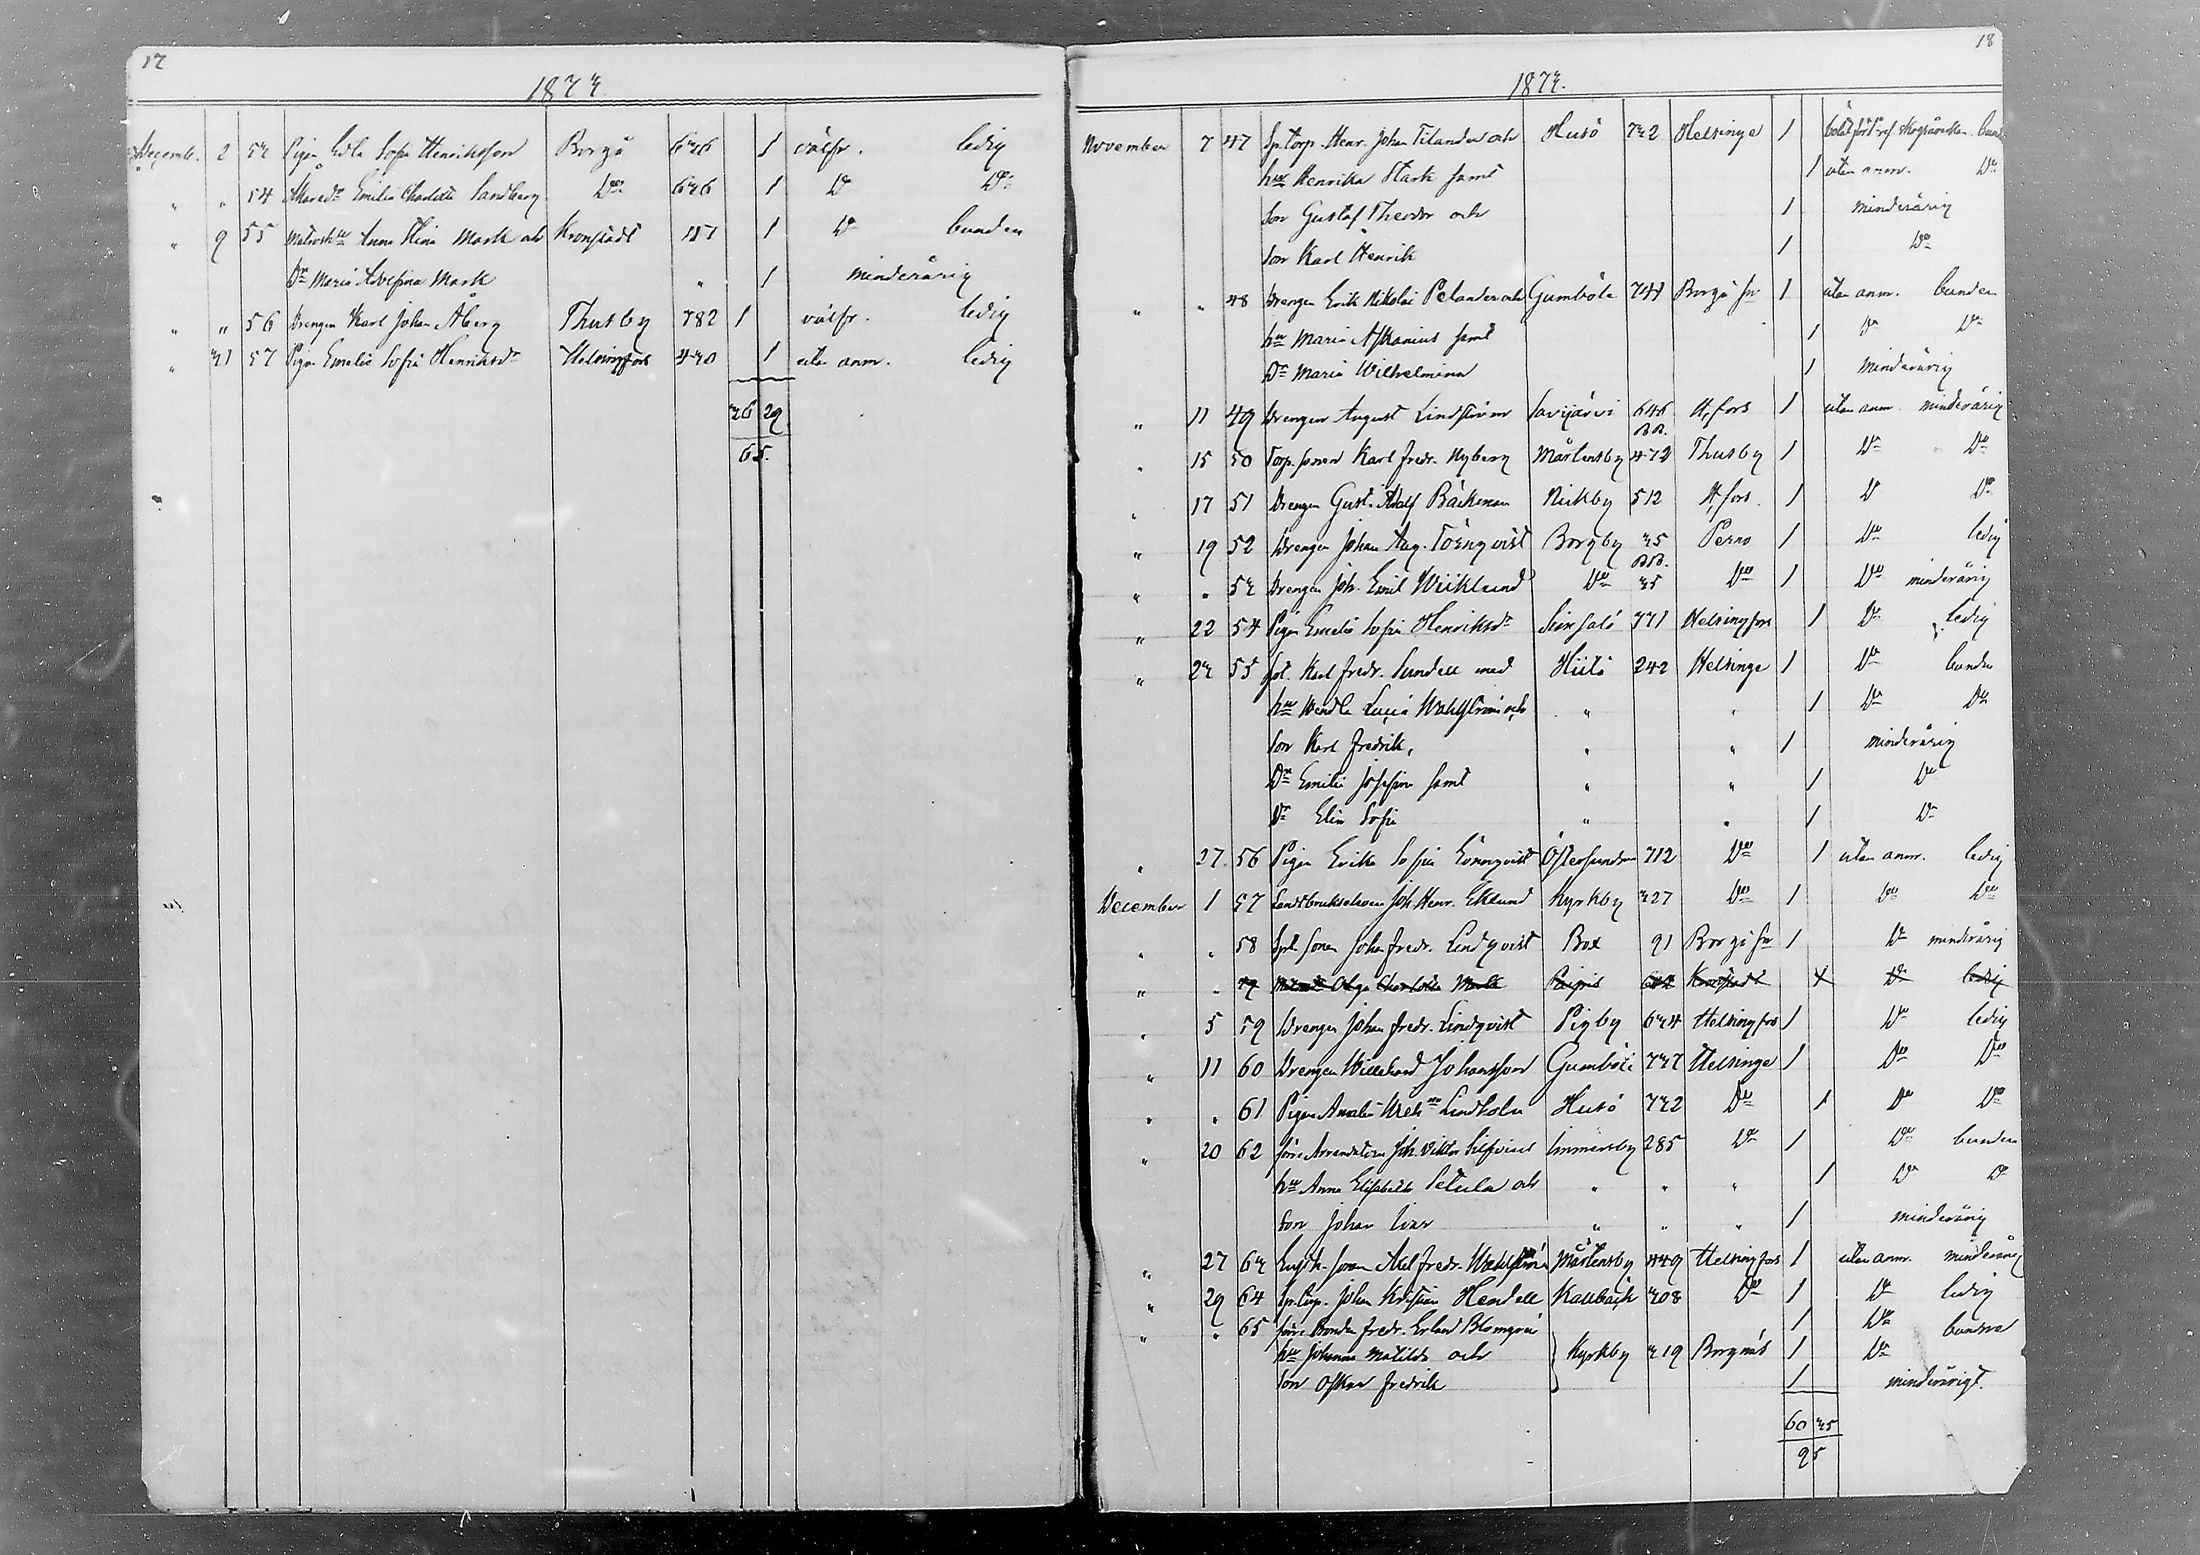 17
1873.
Decemb. 2 53 Pigan Edla Sofia Henriksson Borgå 636 1 välfr. ledig
" " 54 Emilia Charlotta Sandberg Do 636 1 Do Do
" 9 55 Anna Stina Mark och Kronstadt 1 Do bunden
Dr Maria Adolfina Mark " 1 minderårig
" " 56 Drengen Karl Johan Åberg Thusby 782 1 välfr. ledig
" 31 57 Pigan Emelie Sofia Henriksdr Helsingfors 430 1 utan anm. ledig
36 29
65.
18
1873.
November 7 47 Sp.torp. Henr. Johan Tilander och Husö 732 Helsinge 1
hu Henrika Stark samt 1 utan anm. Do
Son Gustaf Theodor och 1 minderårig
Son Karl Henrik 1 Do
" " 48 Drengen Erik Nikolai Pelander och Gumböle 741 Borgå sn 1 utan anm. bunden
hu Maria Askanius samt 1 Do Do
Dr Maria Wilhelmina 1 minderårig
" 11 49 Drengen August Lindström Savijärvi 646 H,fors 1 utan anm. minderårig
BB.
" 15 50 Torp. sonen Karl Fredr. Nyberg Mårtensby 472 Thusby 1 Do Do
" 17 51 Drengen Gust. Adolf Bäckman Nickby 512 H,fors. 1 Do Do
" 19 52 Drengen Johan Aug. Törnqvist Borgby 35 Perno 1 Do ledig
BB.
" " 53 Drengen Joh. Emil Wiiklund Do 35 Do 1 Do minderårig
" 22 54 Pigan Emelie Sofia Henriksdr 771 Helsingfors 1 Do ledig
" 23 55 Karl Fredr. Sundell med Hiitö 242 Helsinge 1 Do bunden
hu Wendla Lucia Wahlström och " " 1 Do Do
Son Karl Fredrik, " " 1 minderårig
Dr Emilia Josefina samt " " 1 Do
Dr Elin Sofia " " 1 Do
" 27. 56 Pigan Erika Sofia Lönnqvist Östersundom 712 Do 1 utan anm. ledig
December 1 57 Joh. Henr. Eklund Kyrkby 327 Do 1 Do Do
" " 58 sonen Johan Fredr. Lindqvist Box 91 Borgå sn 1 Do minderårig
" " 59 Olga Charlotta Mark Paipis Kronstadt 1 Do ledig
" 5 59 Drengen Johan Fredr. Lindqvist Pigby 634 Helsingfors 1 Do ledig
" 11 60 Drengen Willehard Johansson Gumböle 737 Helsinge 1 Do Do
" " 61 Pigan Amalia Lindholm Husö 732 Do 1 Do Do
" 20 62 förre Arrendatorn Joh. Viktor Immersby 285 Do 1 Do bunden
hu Anna Elisabeth Setula och " " " 1 Do Do
Son Johan Ivar " " " 1 minderårig
" 27 63 sonen Axel Fredr. Wahlström Mårtensby 449 Helsingfors 1 utan anm. minderårig
" 29 64 Johan Kristian Hendell Kallbäck 308 Do 1 Do ledig
" " 65 förre Bonden Fredr. Erland Blomqvist 1 Do bundna
hu Johanna Matilda och Kyrkby 319 Borgnäs 1 Do
Son Oskar Fredrik 1 minderårigt.
60 35
95